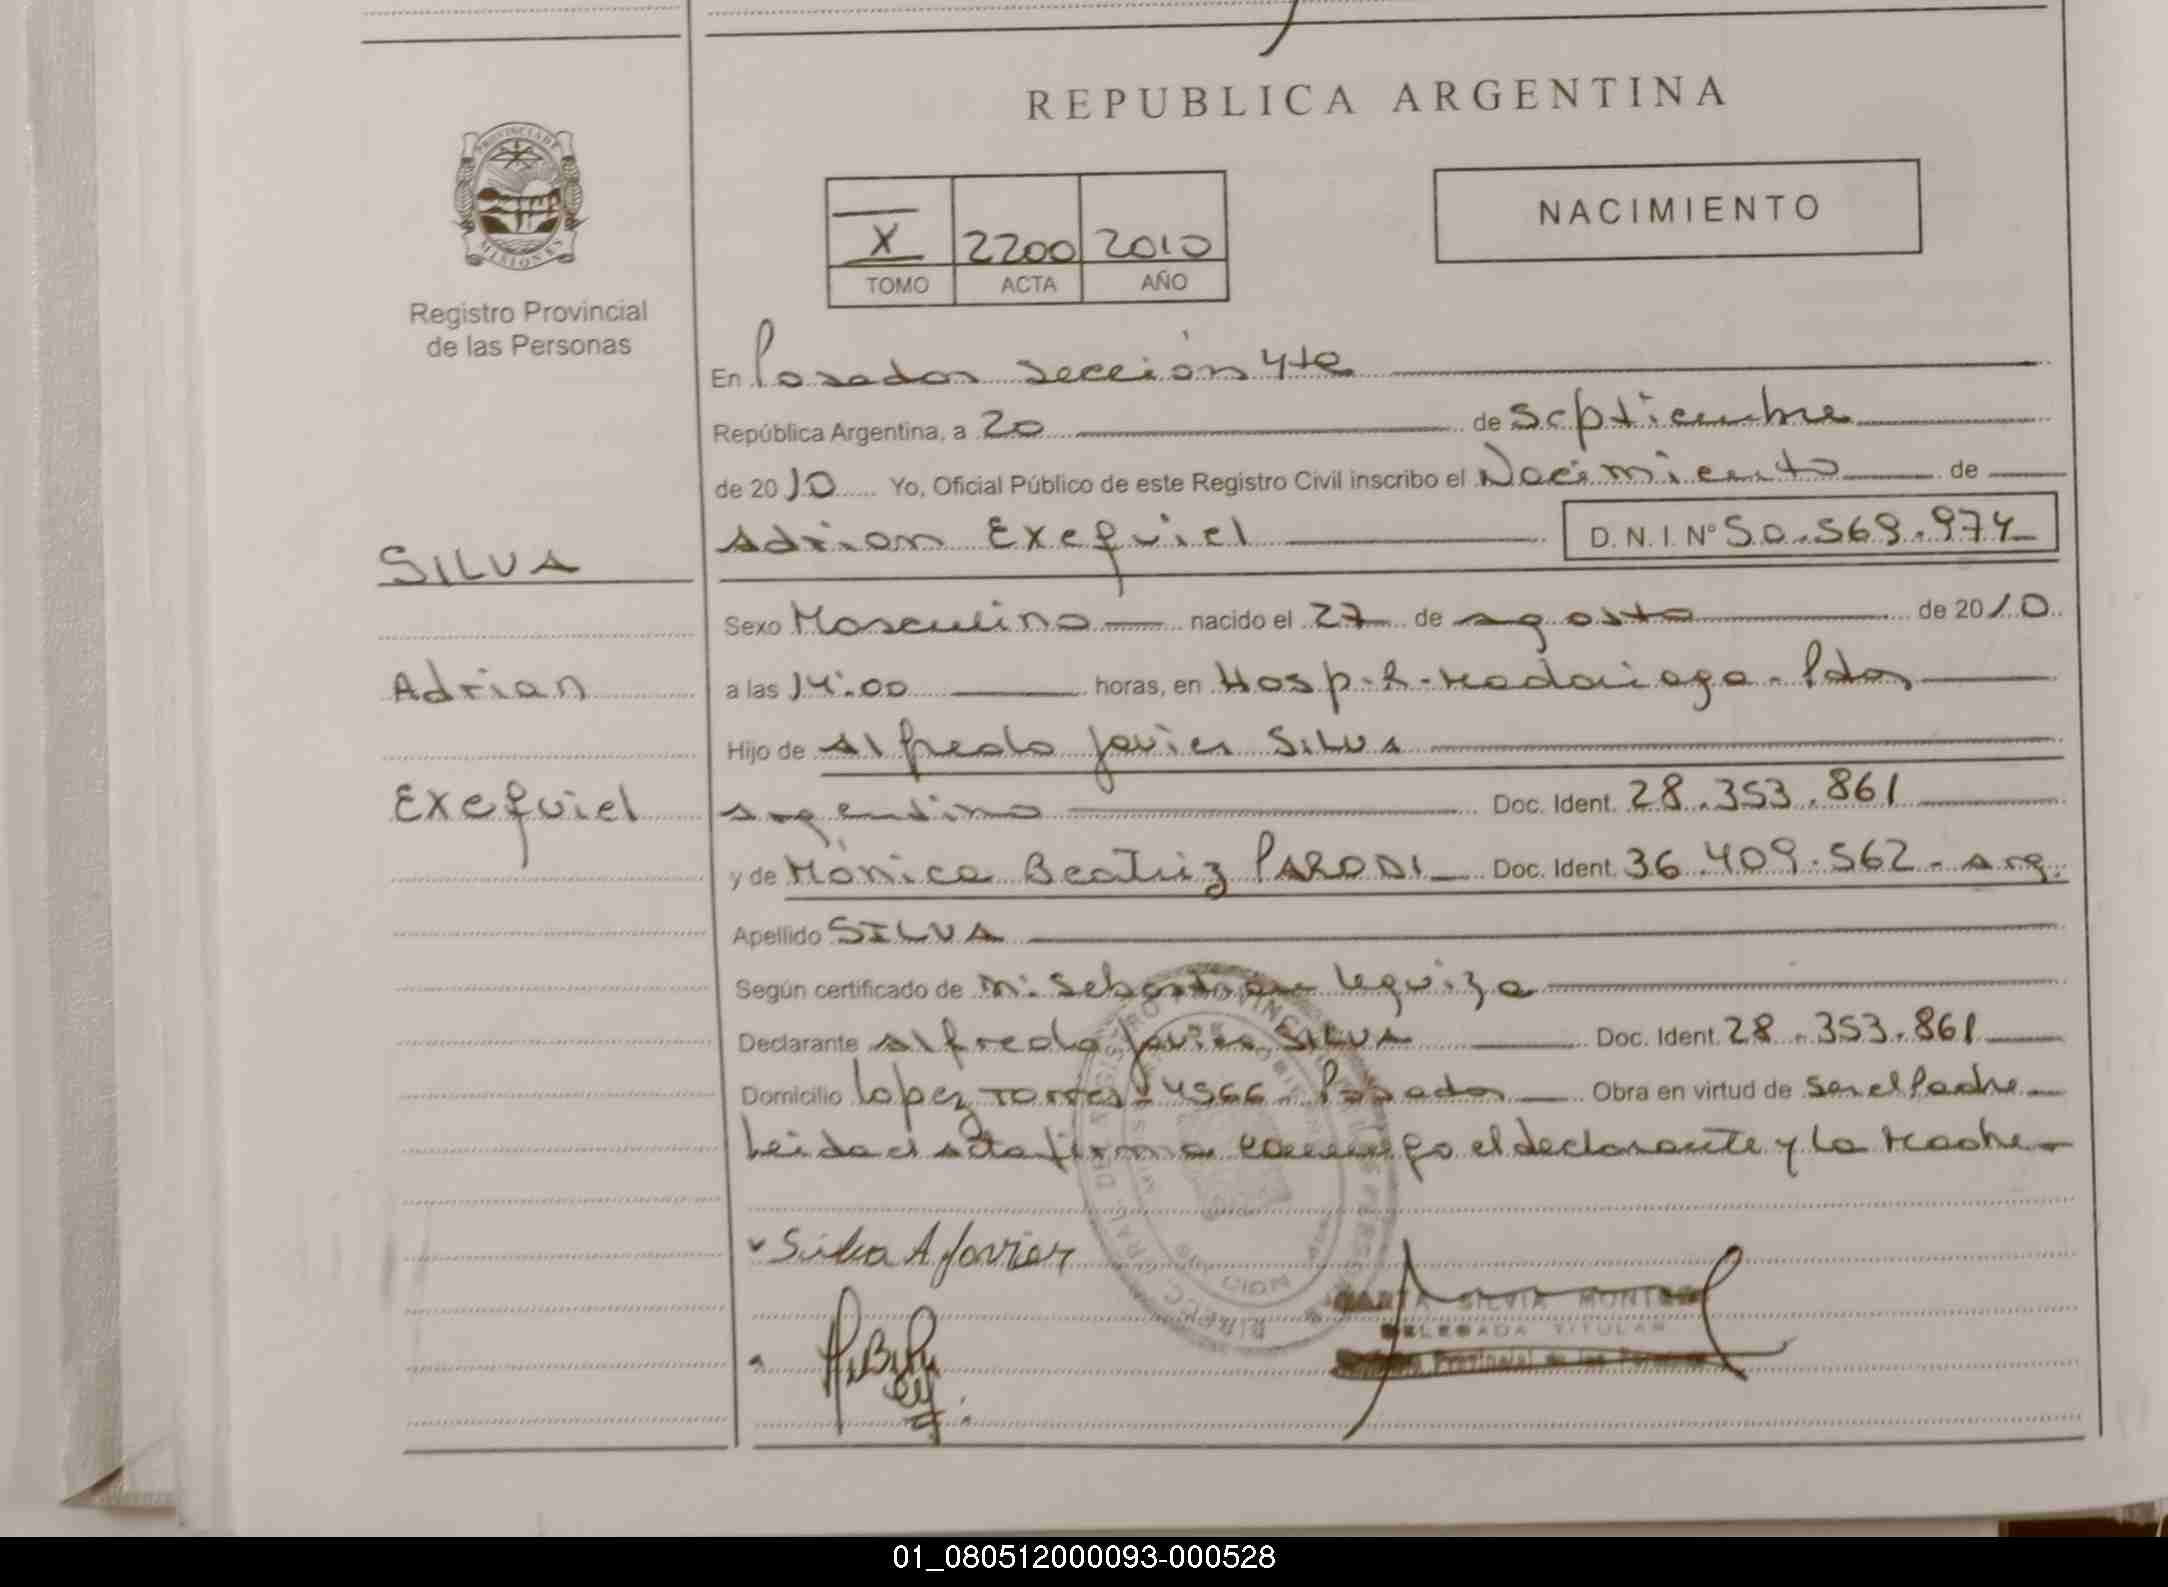 REPUBLICA ARGENTINA
PROVINCIA DE
MISIONES
Registro Provincial
de las Personas
X 2200 2010
TOMO ACTA AÑO
NACIMIENTO
En Posadas sección 4ta
República Argentina, a 20 de Septiembre
de 2010 Yo, Oficial Público de este Registro Civil inscribo el Nacimiento de
Adrian Exequiel D.N.I. Nº 50.569.974
SILVA
Adrian
Exequiel
Sexo Masculino nacido el 27 de agosto de 2010
a las 14:00 horas, en Hosp. R. Madariaga - Pdas
Hijo de Alfredo Javier SILVA
argentino Doc. Ident. 28.353.861
y de Mónica Beatriz PARODI Doc. Ident. 36.409.562 - arg.
Apellido SILVA
Según certificado de m. Sebastian Leguiza
Declarante Alfredo Javier SILVA Doc. Ident. 28.353.861
Domicilio Lopez Torres 4966 - Posadas Obra en virtud de ser el Padre
Leida el acta firma conmigo el declarante y la Madre
Silva A Javier
MARTA SILVIA
DELEGADA TITULAR
Provincial de las Personas
01_080512000093-000528